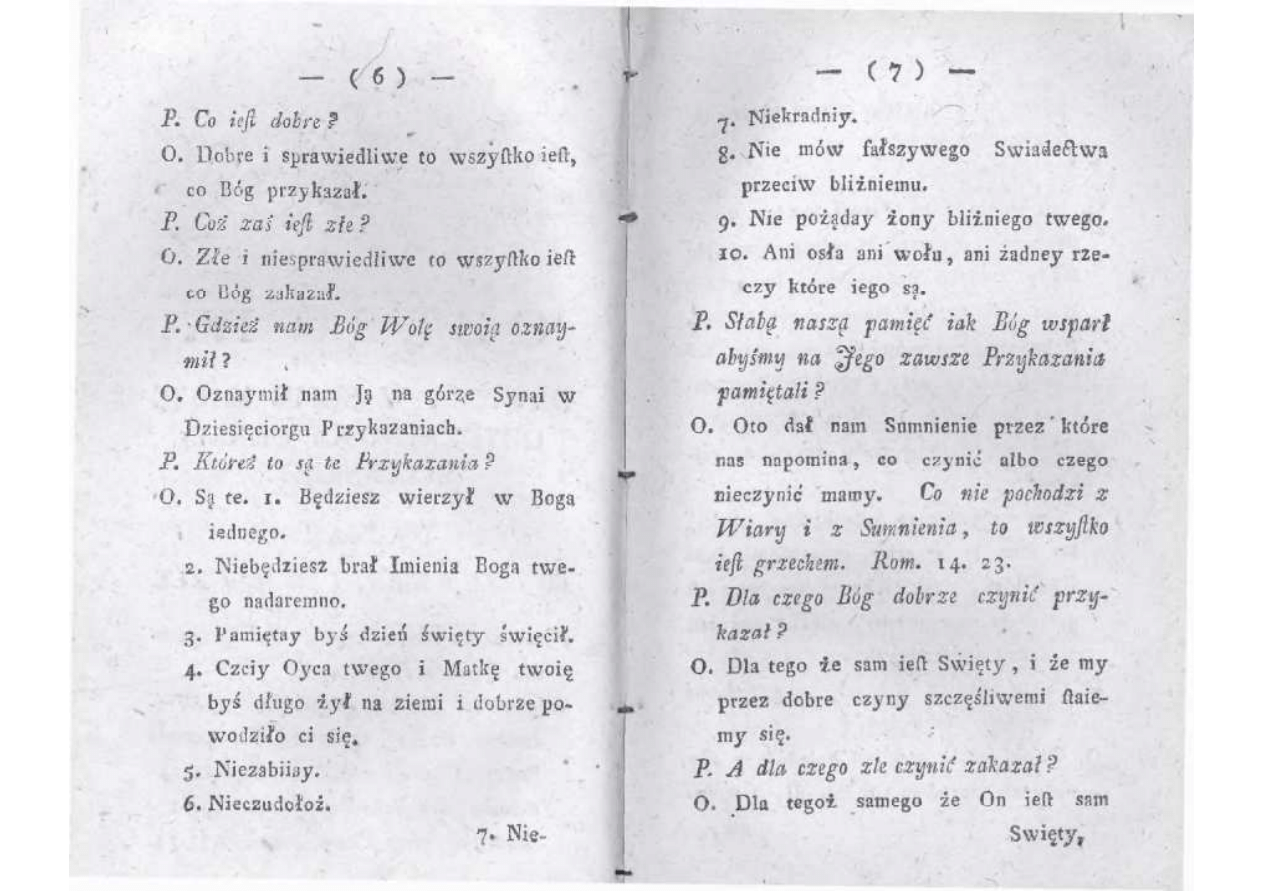 — ( 6 ) —
P. Co ieſt dobre?
O. Dobre i sprawiedliwe to wszyſtko ieſt,
co Bóg przykazał.
P. Coż zaś ieſt złe?
O. Złe i niesprawiedliwe to wszyſtko ieſt
co Bóg zakazał.
P. Gdzież nam Bóg Wolę swoią oznay-
mił?
O. Oznaymił nam Ją na górze Synai w
Dziesięciorgu Przykazaniach.
P. Któreż to są te Przykazania?
O. Są te. 1. Będziesz wierzył w Boga
iednego.
2. Niebędziesz brał Imienia Boga twe-
go nadaremno.
3. Pamiętay byś dzień święty święcił.
4. Czciy Oyca twego i Matkę twoię
byś długo żył na ziemi i dobrze po-
wodziło ci się.
5. Niezabiiay.
6. Nieczudołoż.
7. Nie-
— ( 7 ) —
7. Niekradniy.
8. Nie mów fałszywego Swiadectwa
przeciw bliźniemu.
9. Nie pożąday żony bliźniego twego.
10. Ani osła ani wołu, ani żadney rze-
czy które iego są.
P. Słabą naszą pamięć iak Bóg wsparł
abyśmy na Jego zawsze Przykazania
pamiętali?
O. Oto dał nam Sumnienie przez które
nas napomina, co czynić albo czego
nieczynić mamy. Co nie pochodzi z
Wiary i z Sumnienia, to wszyſtko
ieſt grzechem. Rom. 14. 23.
P. Dla czego Bóg dobrze czynić przy-
kazał?
O. Dla tego że sam ieſt Swięty, i że my
przez dobre czyny szczęśliwemi ſtaie-
my się.
P. A dla czego zle czynić zakazał?
O. Dla tegoż samego że On ieſt sam
Swięty,